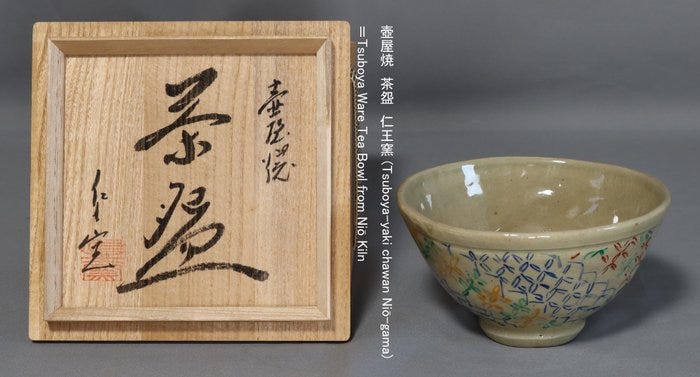 壺屋焼
茶盌
仁王窯
壺屋焼 茶盌 仁王窯 (Tsuboya-yaki chawan Niō-gama)
= Tsuboya Ware Tea Bowl from Niō Kiln